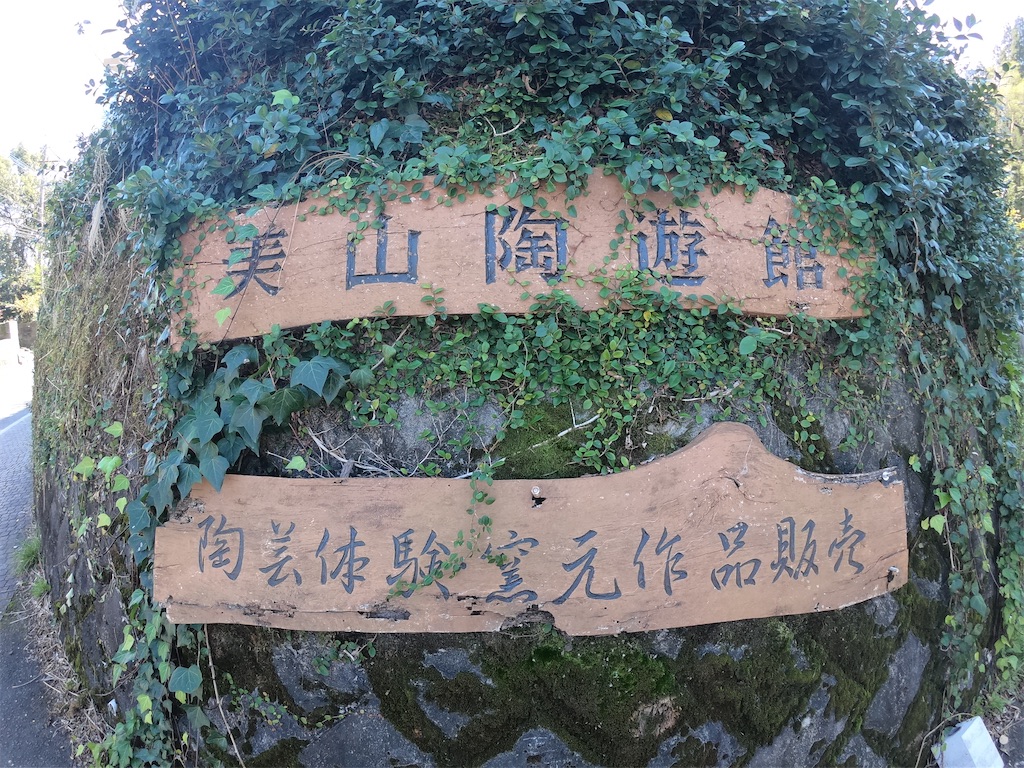 美山陶遊館
陶芸体験窯元作品販売